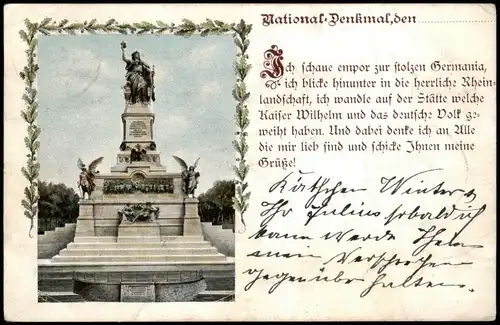 National-Denkmal, den
Ich schaue empor zur stolzen Germania,
ich blicke hinunter in die herrliche Rhein-
landschaft, ich wandle auf der Stätte welche
Kaiser Wilhelm und das deutsche Volk ge-
weiht haben. Und dabei denke ich an Alle
die mir lieb sind und schicke Ihnen meine
Grüße!
Käthchen Winter
Ihr Julius sobald ich
kann werde Ihnen
mein Versprechen
gegenüber halten.